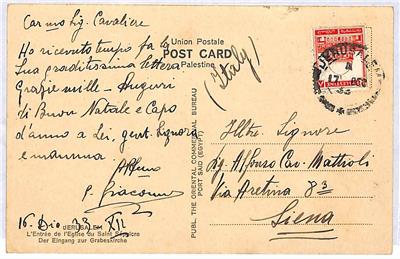 Car mo Sig. Cavaliere
Ho ricevuto tempo fa la
Sua graditissima lettera
Grazie mille - Auguri
di Buon Natale e Capo
d'anno a Lei, gent. Signora
e mamma.
P. Giacomo
16 Dic 33 XII
JERUSALEM
L'Entrée de l'Eglise du Saint Sépulcre
Der Eingang zur Grabeskirche
Union Postale
POST CARD
Palestine
(Italy)
PUBL. THE ORIENTAL COMMERCIAL BUREAU
PORT SAID (EGYPT)
JERUSALEM
17 DE
33
Illtre. Signore
Sig. Alfonso Cav. Mattioli
Via Aretina 83
Siena